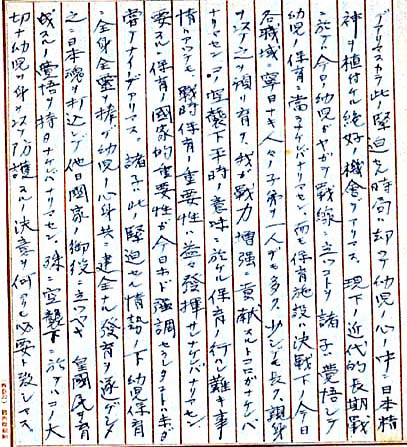 デアリマスカラ此ノ緊迫セル時局ハ却ッテ幼児ノ心ノ中ニ日本精
神ヲ植付ケル絶好ノ機会デアリマス 現下ノ近代的長期戦
ニ於テ今日ノ幼児ガヤガテ戦線ニ立ツコトヲ諸子ハ覚悟シテ
幼児ノ保育ニ当ラナケレバナリマセン 而モ保育施設ハ決戦下ノ今日
各職域ニ寧日ナキ人々ノ子弟ヲ一人デモ多ク少シデモ長ク親身
ヲ以テ之ヲ預リ育テ我ガ戦力ノ増強ニ貢献スルトコロガナケレバ
ナリマセンノデ空襲下平時ノ意味ニ於ケル保育ノ行ハレ難キ事
情ニアッテモ戦時保育ノ重要性ハ益々発揮サレナケレバナリマセン
要スルニ保育ノ国家的重要性ガ今日ホド強調セラレタコトハ未ダ
嘗テナイノデアリマス 諸子ハ此ノ緊迫セル情勢ノ下幼児保育
ニ全身全霊ヲ捧ゲ幼児ノ心身共ニ健全ナル発育ヲ遂ゲシメ
之ニ日本魂ヲ打込ンデ他日国家ノ御役ニ立ツベキ 皇国民ヲ育
成スルノ覚悟ヲ持タナケレバナリマセン 殊ニ空襲下ニ於テハコノ大
切ナ幼児ヲ身ヲ以テ防護スルノ決意ヲ何ヨリモ必要ト致シマス